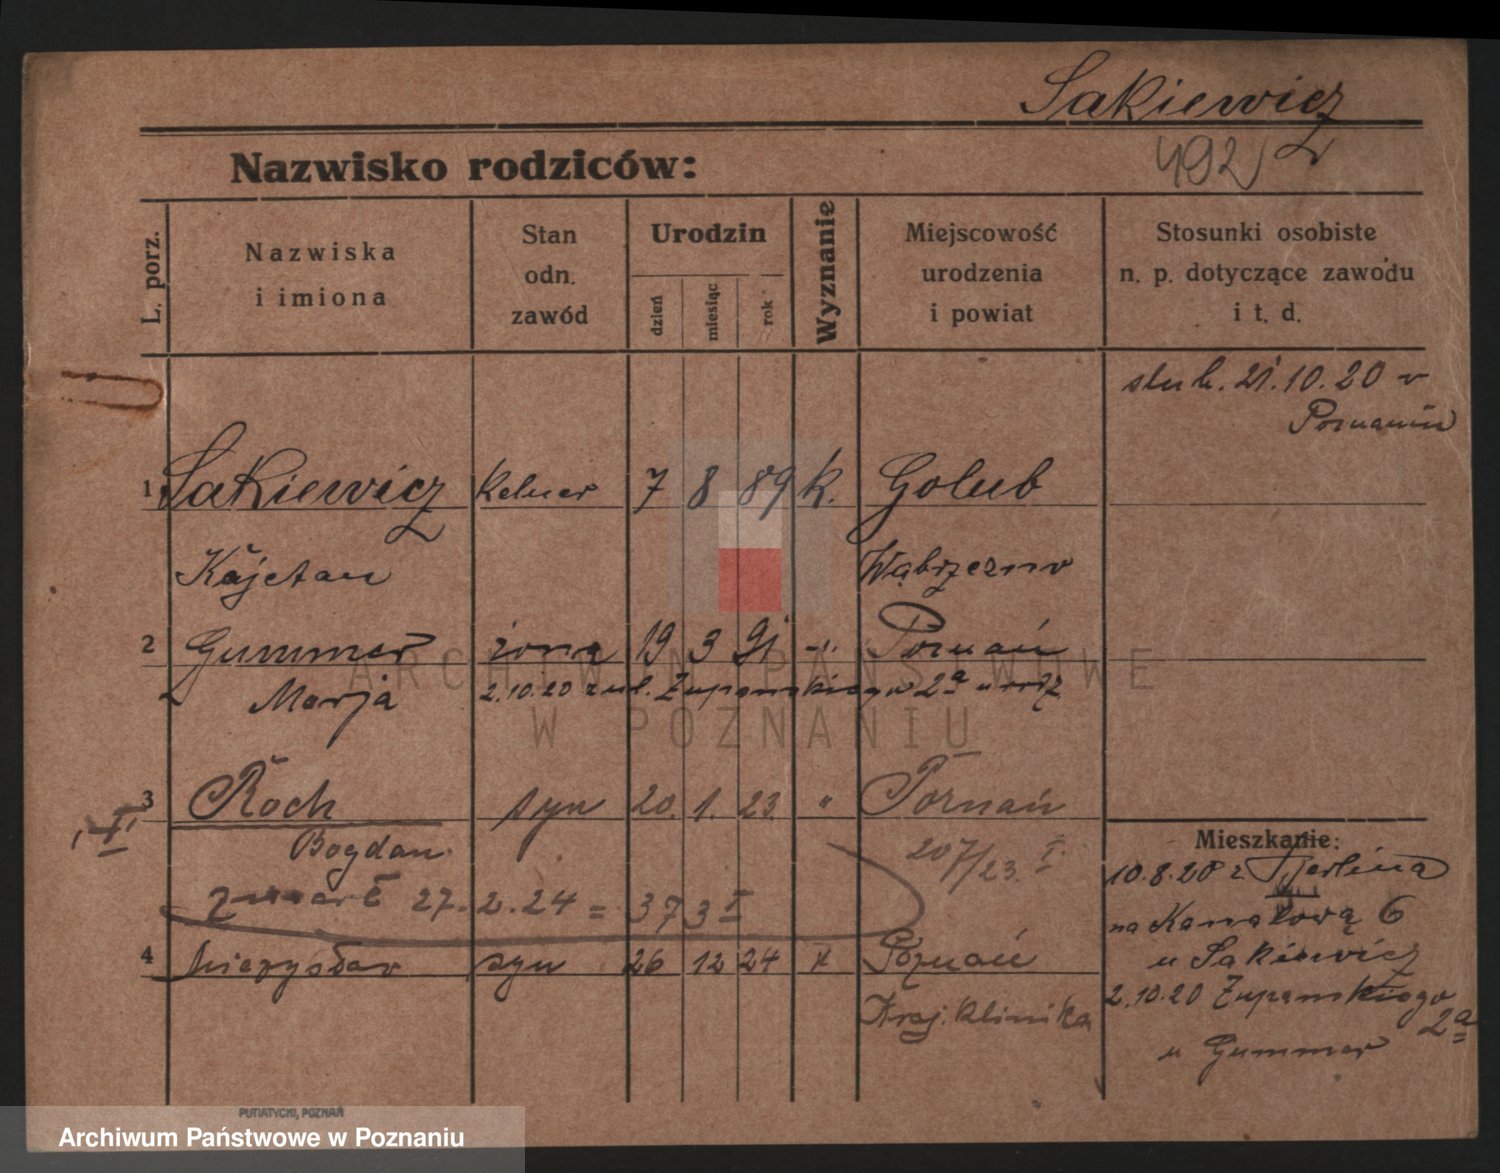 Sakiewicz
Nazwisko rodziców:
492
L. porz.
Nazwiska
i imiona
Stan
odn.
zawód
Urodzin
dzień
miesiąc
rok
Wyznanie
Miejscowość
urodzenia
i powiat
Stosunki osobiste
n. p. dotyczące zawodu
i t. d.
slub. 21.10.20 w
Poznaniu
1 Sakiewicz kelner 7 8 89 k. Golub
Kajetan Wąbrzezno
2 Gummer żona 19 3 91 -„- Poznań
Marja 2.10.20 z ul. Żupanskiego 2a
3 Roch syn 20. 1. 23. " Poznań
I
Bogdan 207/23. I.
zmarł 27.2.24 = 373 I
4 Mieczysław syn 26 12 24 k Poznań
Kraj. Klinika
Mieszkanie:
10.8.20 z Berlina
na Kanałową 6
u Sakiewicz
2.10.20 Żupanskiego
2a
u Gummer
PUTIATYCKI, POZNAŃ
ARCHIWUM PAŃSTWOWE
W POZNANIU
Archiwum Państwowe w Poznaniu